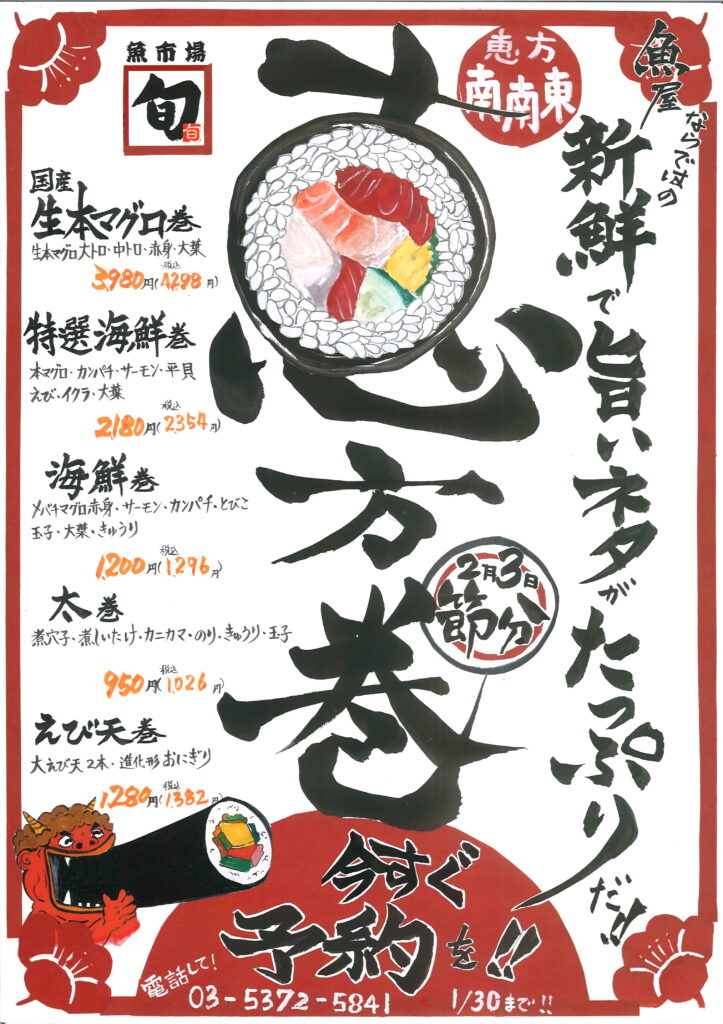 魚市場
旬
旬
恵方
南南東
魚屋ならではの
新鮮で旨いネタがたっぷりだ!!
恵方巻
2月3日
節分
国産
生本マグロ巻
生本マグロ大トロ・中トロ・赤身・大葉
3,980円(税込4298円)
特選海鮮巻
本マグロ・カンパチ・サーモン・平貝
えび・イクラ・大葉
2,180円(税込2,354円)
海鮮巻
メバチマグロ赤身・サーモン・カンパチ・とびこ
玉子・大葉・きゅうり
1,200円(税込1,296円)
太巻
煮穴子・煮しいたけ・カニカマ・のり・きゅうり・玉子
950円(税込1,026円)
えび天巻
大えび天2本・進化形おにぎり
1,280円(税込1,382円)
今すぐ
予約を!!
電話して!
03-5372-5841 1/30まで!!